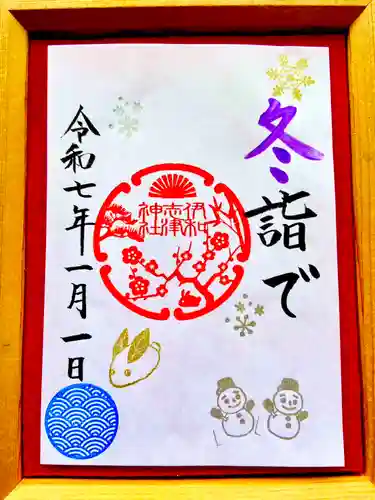 冬詣で
伊和
志津
神社
令和七年一月一日